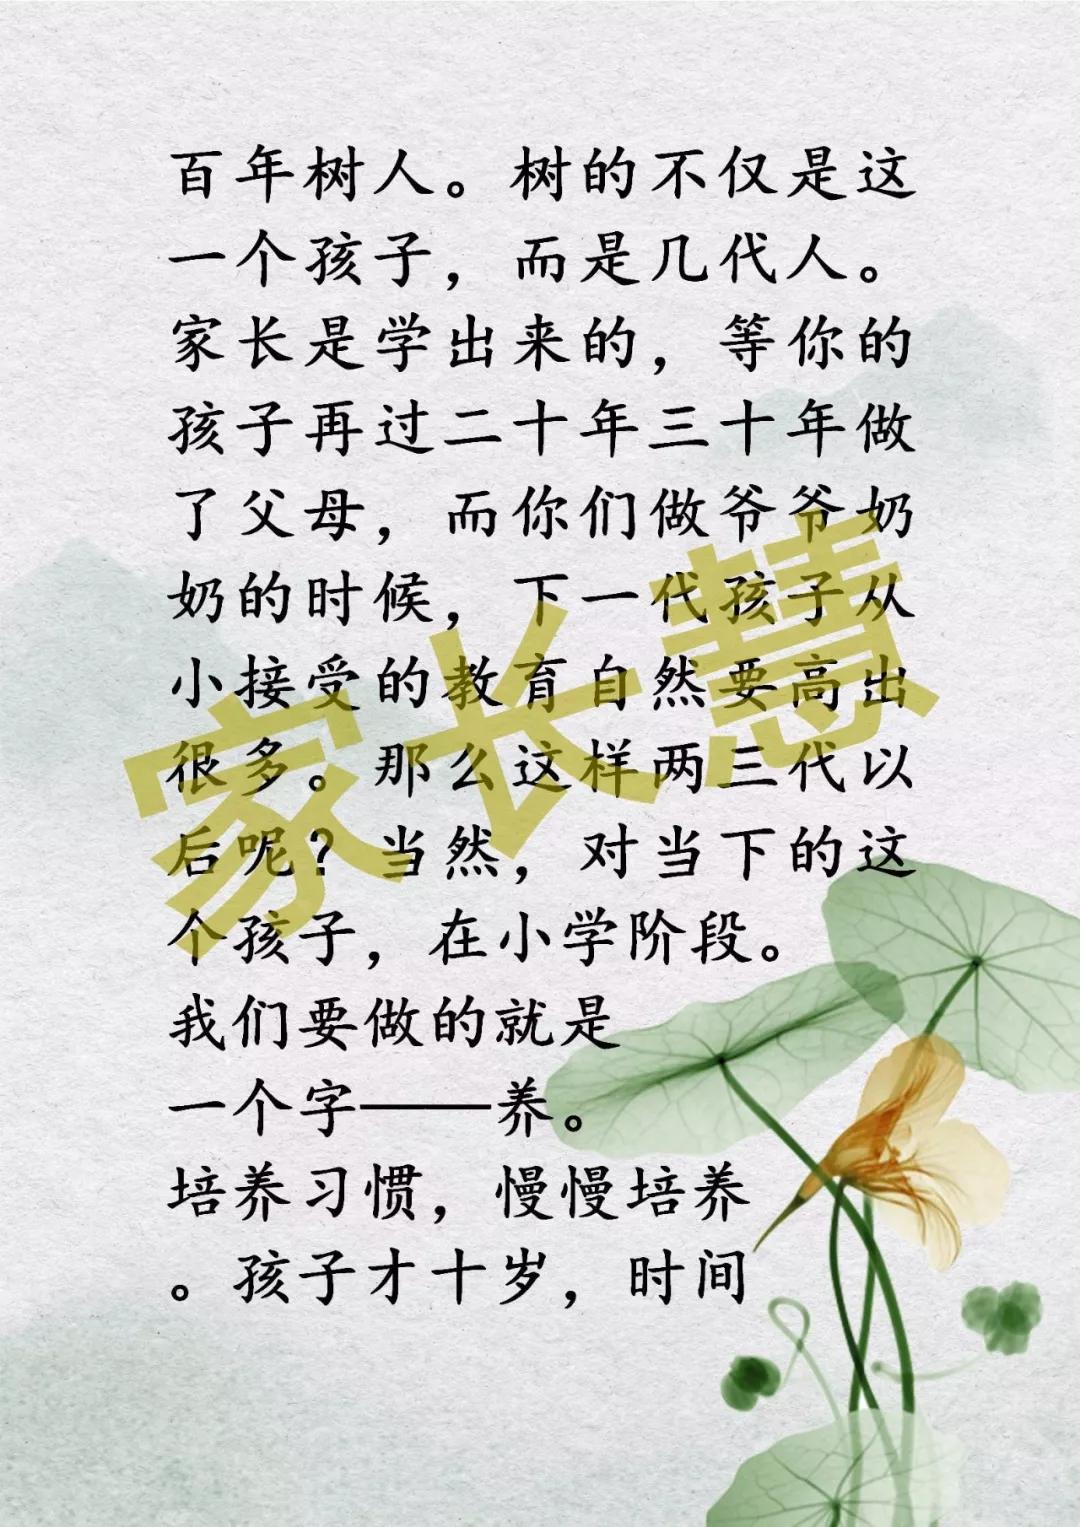 百年树人。树的不仅是这
一个孩子，而是几代人。
家长是学出来的，等你的
孩子再过二十年三十年做
了父母，而你们做爷爷奶
奶的时候，下一代孩子从
小接受的教育自然要高出
很多。那么这样两三代以
后呢？当然，对当下的这
个孩子，在小学阶段。
我们要做的就是
一个字——养。
培养习惯，慢慢培养
。孩子才十岁，时间
家长慧